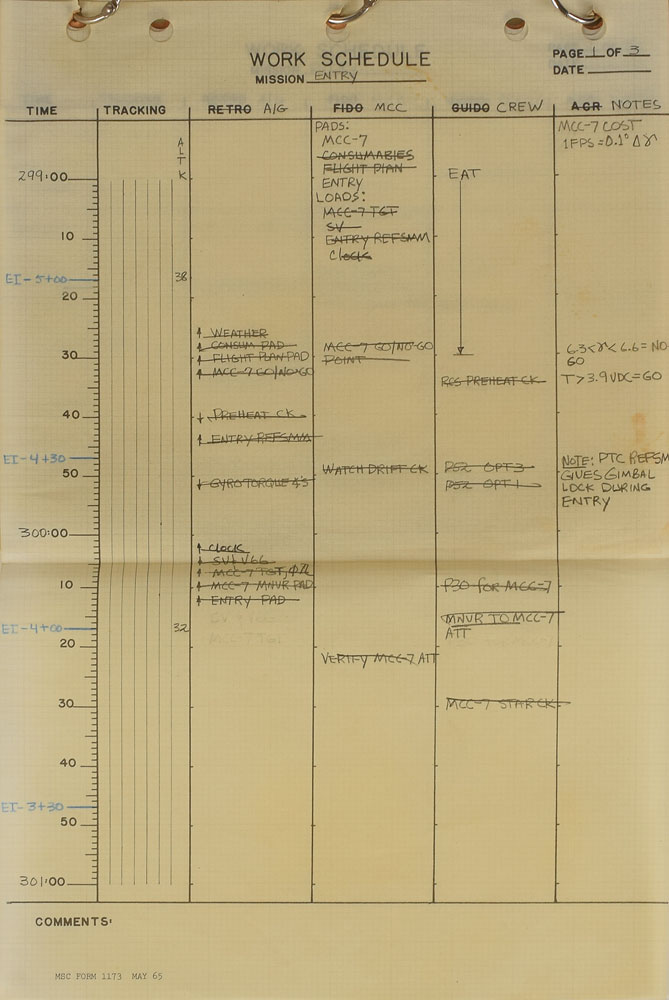 WORK SCHEDULE
MISSION ENTRY
PAGE 1 OF 3
DATE
TIME TRACKING RETRO A/G FIDO MCC GUIDO CREW AGR NOTES
ALT K
PADS:
MCC-7
CONSUMABLES
FLIGHT PLAN
ENTRY
LOADS:
MCC-7 TGT
SV
ENTRY REFSMM
CLOCK
MCC-7 COST
1FPS = 0.1° Δγ
299:00
EAT
10
EI-5+00
38
20
↑ WEATHER
↑ CONSUM PAD
↑ FLIGHT PLAN PAD
↑ MCC-7 GO/NO-GO
MCC-7 GO/NO-GO
POINT
30
6.3<γ<6.6 = NO
GO
RCS PREHEAT CK
T>3.9VDC=GO
40
↓ PREHEAT CK
↑ ENTRY REFSMM
EI-4+30
50
WATCH DRIFT CK
P52 OPT 3
P52 OPT 1
↑ GYRO TORQUE ∡'S
NOTE: PTC REFSM
GIVES GIMBAL
LOCK DURING
ENTRY
300:00
↑ CLOCK
↑ SV+V66
↑ MCC-7 TGT,
↑ MCC-7 MNVR PAD
↑ ENTRY PAD
10
P30 FOR MCC-7
MNVR TO MCC-7
ATT
EI-4+00
32
20
VERIFY MCC-7 ATT
30
MCC-7 STAR CK
40
EI-3+30
50
301:00
COMMENTS:
MSC FORM 1173 MAY 65